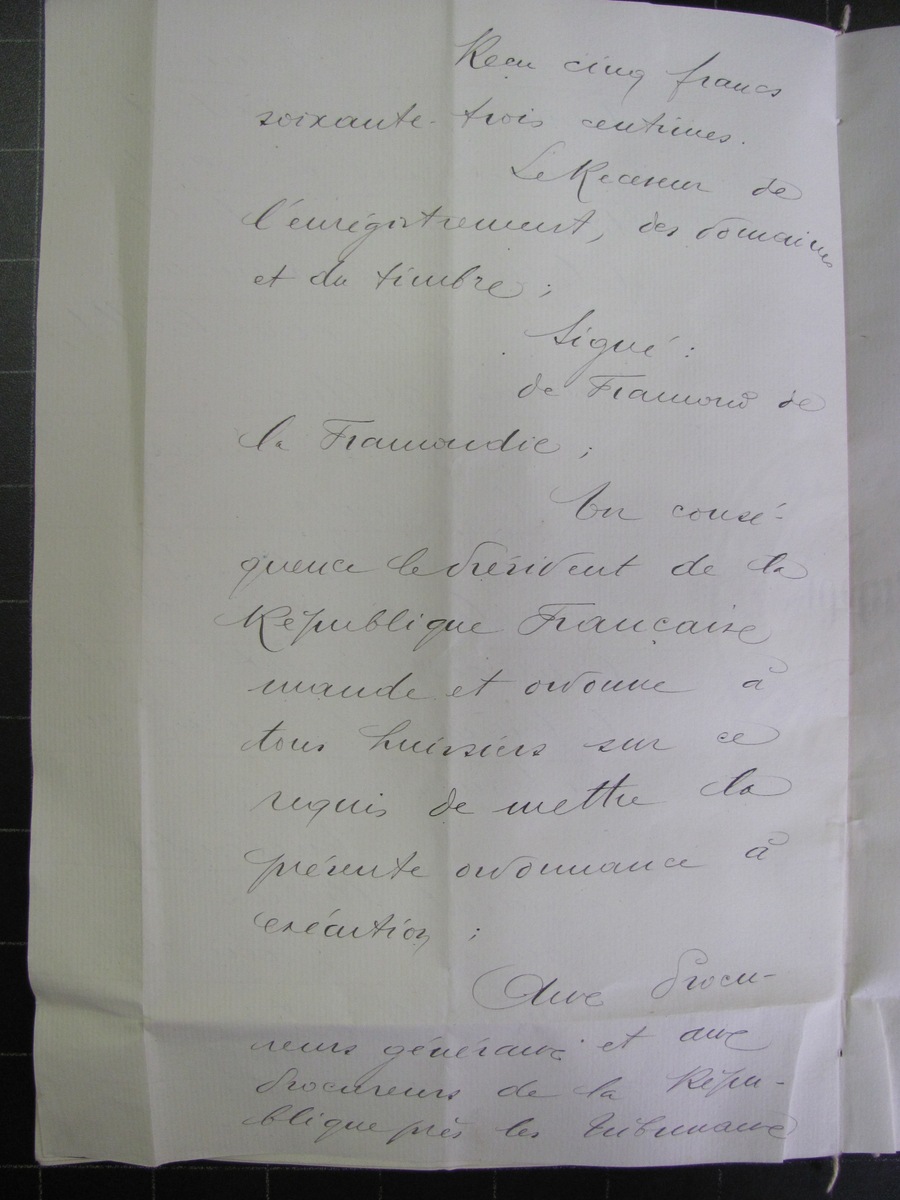 Reçu cinq francs
soixante-trois centimes.
Le Receveur de
l'enrégistrement, des domaines
et du timbre ;
Signé :
de Framond de
la Framondie ;
En consé-
quence le Président de la
République Française
mande et ordonne à
tous huissiers sur ce
requis de mettre la
présente ordonnance à
exécution ;
Aux Procu-
reurs généraux et aux
Procureurs de la Répu-
blique près les Tribunaux